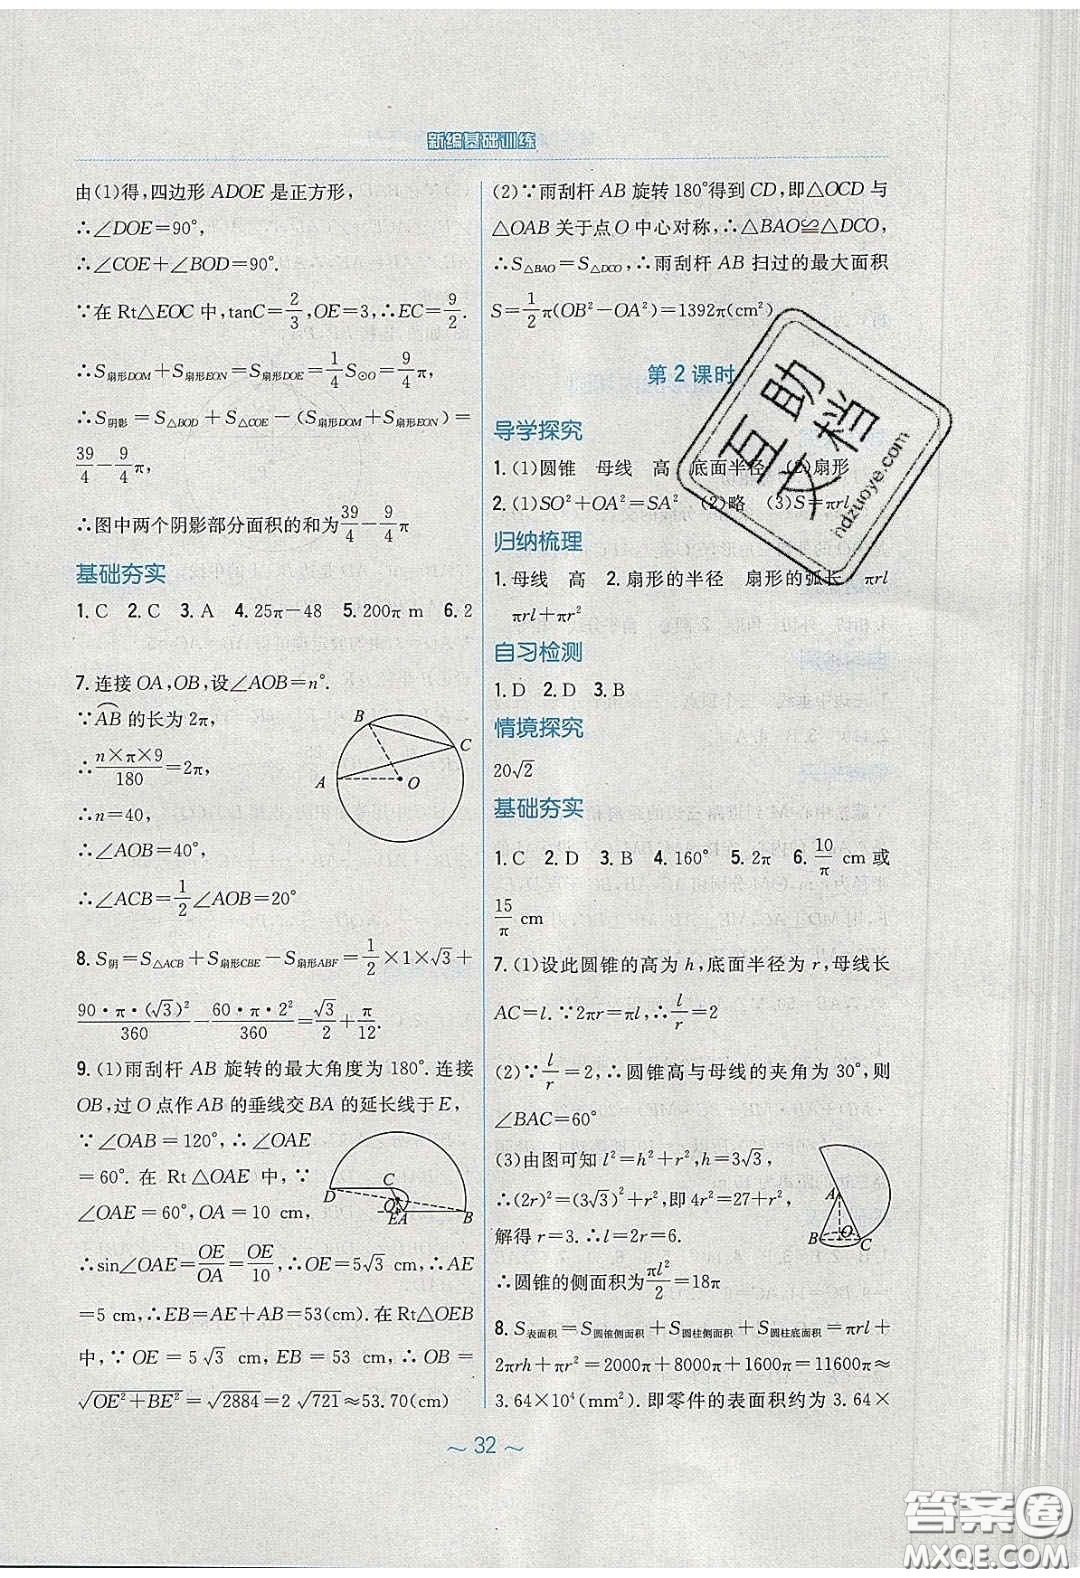 新编基础训练
由(1)得,四边形 ADOE 是正方形,
∴∠DOE=90°,
∴∠COE+∠BOD=90°.
∵在 Rt△EOC 中,tanC=2/3,OE=3,∴EC=9/2.
∴S扇形DOM+S扇形EON=S扇形DOE=1/4 S⊙O=9/4 π,
∴S阴影=S△BOD+S△COE-(S扇形DOM+S扇形EON)=
39/4-9/4 π,
∴图中两个阴影部分面积的和为39/4-9/4 π
基础夯实
1. C 2. C 3. A 4. 25π-48 5. 200π m 6. 2
7. 连接 OA,OB,设∠AOB=n°.
∵AB 的长为 2π,
∴n×π×9/180=2π,
∴n=40,
∴∠AOB=40°,
∴∠ACB=1/2∠AOB=20°
B
C
A
O
8. S阴=S△ACB+S扇形CBE-S扇形ABF=1/2×1×√3+
90·π·(√3)²/360-60·π·2²/360=√3/2+π/12.
9. (1)雨刮杆 AB 旋转的最大角度为 180°. 连接
OB,过 O 点作 AB 的垂线交 BA 的延长线于 E,
∵∠OAB=120°,∴∠OAE
=60°. 在 Rt△OAE 中,∵
∠OAE=60°,OA=10 cm,
∴sin∠OAE=OE/OA=OE/10,∴OE=5√3 cm,∴AE
=5 cm,∴EB=AE+AB=53(cm). 在 Rt△OEB
中,∵OE=5√3 cm,EB=53 cm,∴OB=
√(OE²+BE²)=√2884=2√721≈53.70(cm)
D
C
O
EA
B
(2)∵雨刮杆 AB 旋转 180°得到 CD,即△OCD 与
△OAB 关于点 O 中心对称,∴△BAO≌△DCO,
∴S△BAO=S△DCO,∴雨刮杆 AB 扫过的最大面积
S=1/2 π(OB²-OA²)=1392π(cm²)
第 2 课时
导学探究
1. (1)圆锥 母线 高 底面半径 (2)扇形
2. (1)SO²+OA²=SA² (2)略 (3)S=πrl
归纳梳理
1. 母线 高 2. 扇形的半径 扇形的弧长 πrl
πrl+πr²
自习检测
1. D 2. D 3. B
情境探究
20√2
基础夯实
1. C 2. D 3. B 4. 160° 5. 2π 6. 10/π cm 或
15/π cm
7. (1)设此圆锥的高为 h,底面半径为 r,母线长
AC=l. ∵2πr=πl,∴l/r=2
(2)∵l/r=2,∴圆锥高与母线的夹角为 30°,则
∠BAC=60°
(3)由图可知 l²=h²+r²,h=3√3,
∴(2r)²=(3√3)²+r²,即 4r²=27+r²,
解得 r=3. ∴l=2r=6.
∴圆锥的侧面积为πl²/2=18π
A
B
O
C
8. S表面积=S圆锥侧面积+S圆柱侧面积+S圆柱底面积=πrl+
2πrh+πr²=2000π+8000π+1600π=11600π≈
3.64×10⁴(mm²). 即零件的表面积约为 3.64×
~ 32 ~
互助文档
hdzuoye.com
答案圈
MXQE.COM